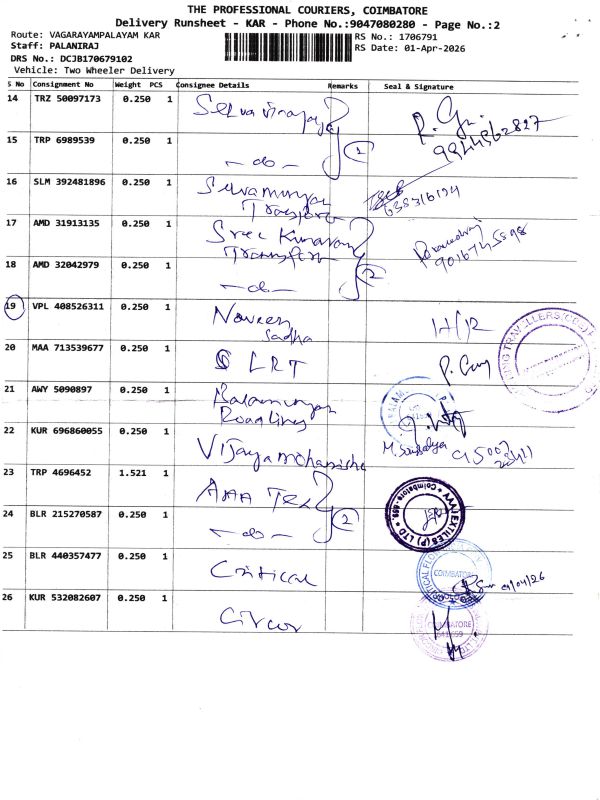 THE PROFESSIONAL COURIERS, COIMBATORE
Delivery Runsheet - KAR - Phone No.:9047080280 - Page No.:2
Route: VAGARAYAMPALAYAM KAR
RS No.: 1706791
Staff: PALANIRAJ
RS Date: 01-Apr-2026
DRS No.: DCJB170679102
Vehicle: Two Wheeler Delivery
S No Consignment No Weight PCS Consignee Details Remarks Seal & Signature
14 TRZ 50097173 0.250 1 Selva Vinayaga
15 TRP 6989539 0.250 1 -do- 2
16 SLM 392481896 0.250 1 Selvamurugan Transport
17 AMD 31913135 0.250 1 Sree Kumaran Transport
18 AMD 32042979 0.250 1 -do- 2
19 VPL 408526311 0.250 1 Naveen Sadha
20 MAA 713539677 0.250 1 LRT
21 AWY 5090897 0.250 1 Balamurugan Roadlines
22 KUR 696860055 0.250 1 Vijayamohanisha
23 TRP 4696452 1.521 1 AAA Tex
24 BLR 215270587 0.250 1 -do- 2
25 BLR 440357477 0.250 1 Critical 01/04/26
COIMBATORE
26 KUR 532082607 0.250 1 Circor